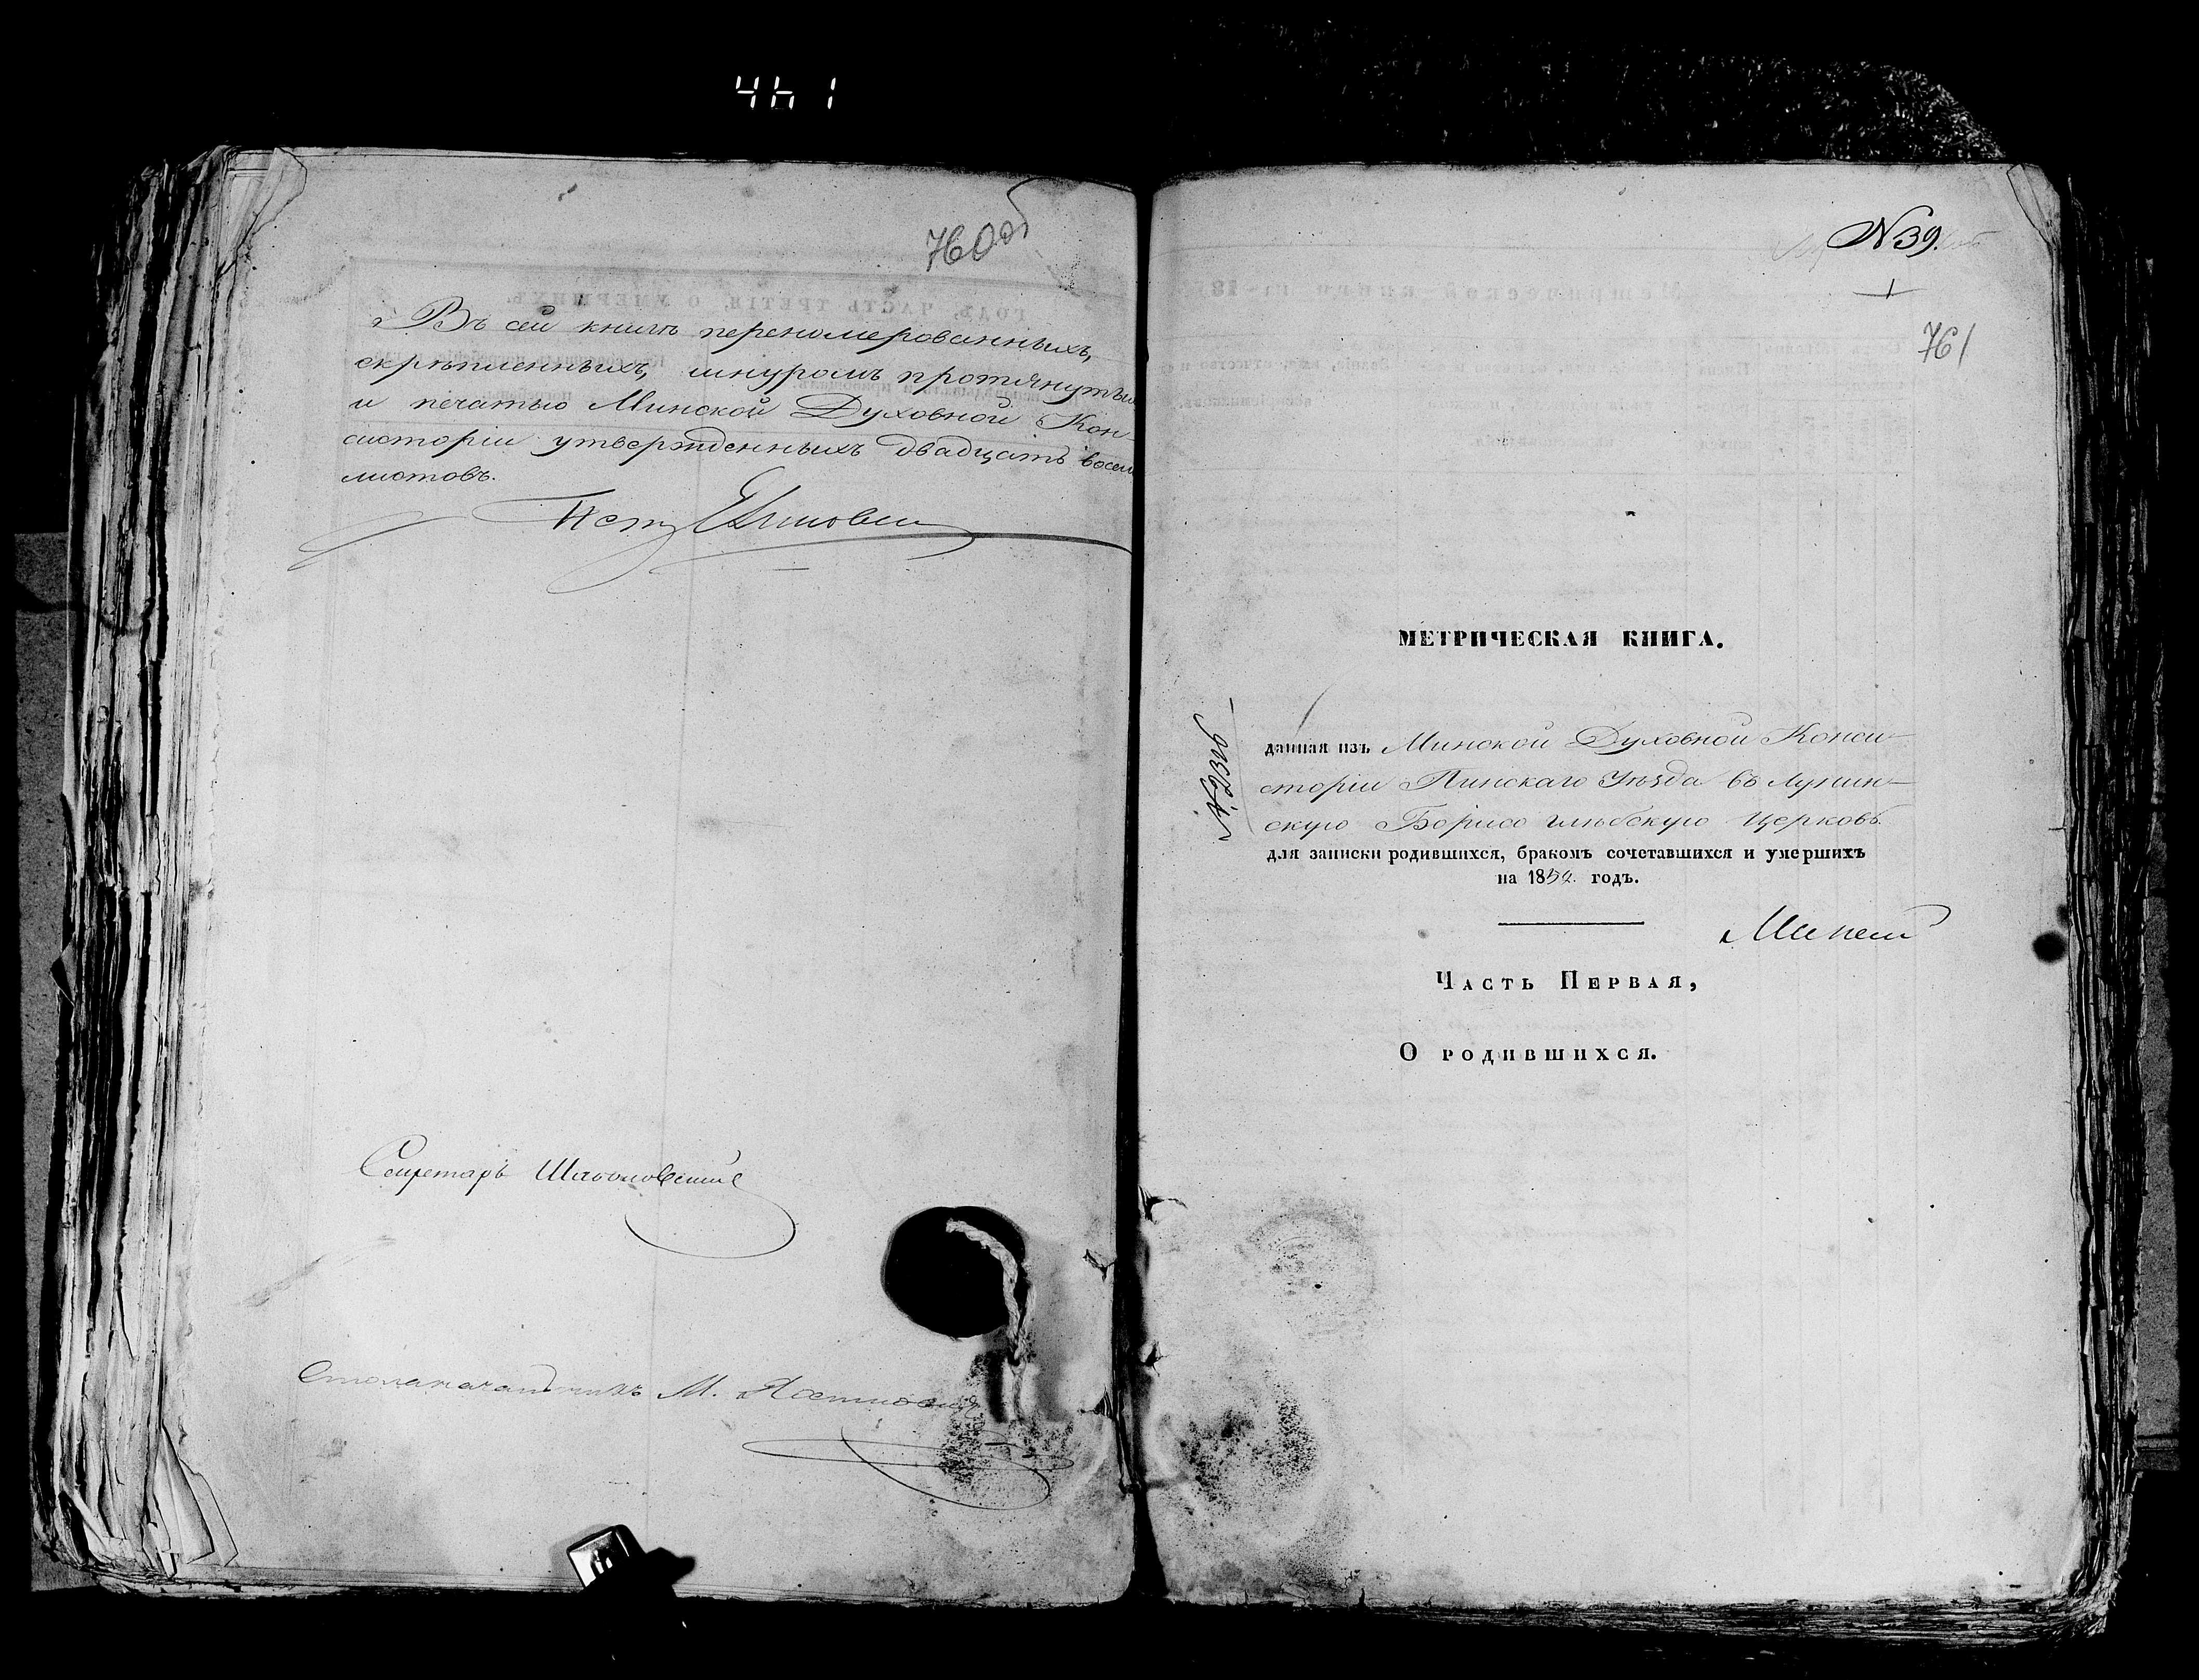 760об
Въ сей книгѣ переномерованныхъ,
скрѣпленныхъ, шнуромъ протянутых
и печатью Минской Духовной Кон-
систоріи утвержденныхъ двадцать восемь
листовъ.
Секретарь
Столоначальникъ М.
№39.
1
761
МЕТРИЧЕСКАЯ КНИГА.
данная изъ Минской Духовной Конси-
сторіи Пинскаго Уѣзда въ Лунин-
скую Борисо глѣбскую Церковь
для записки родившихся, бракомъ сочетавшихся и умершихъ
на 1852 годъ.
Часть Первая,
О родившихся.